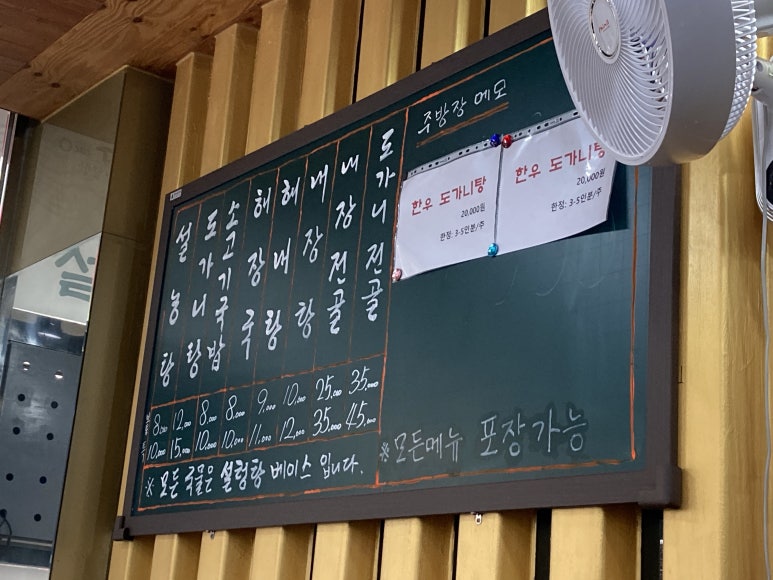 설농탕
도가니탕
소고기국밥
해장국
해내탕
내장탕
내장전골
도가니전골
8,000 12,000 8,000 8,000 9,000 10,000 25,000 35,000
10,000 15,000 10,000 10,000 11,000 12,000 35,000 45,000
※ 모든 국물은 설렁탕 베이스 입니다.
주방장 메모
한우 도가니탕
20,000원
한정: 3-5인분/주
한우 도가니탕
20,000원
한정: 3-5인분/주
※모든메뉴 포장가능